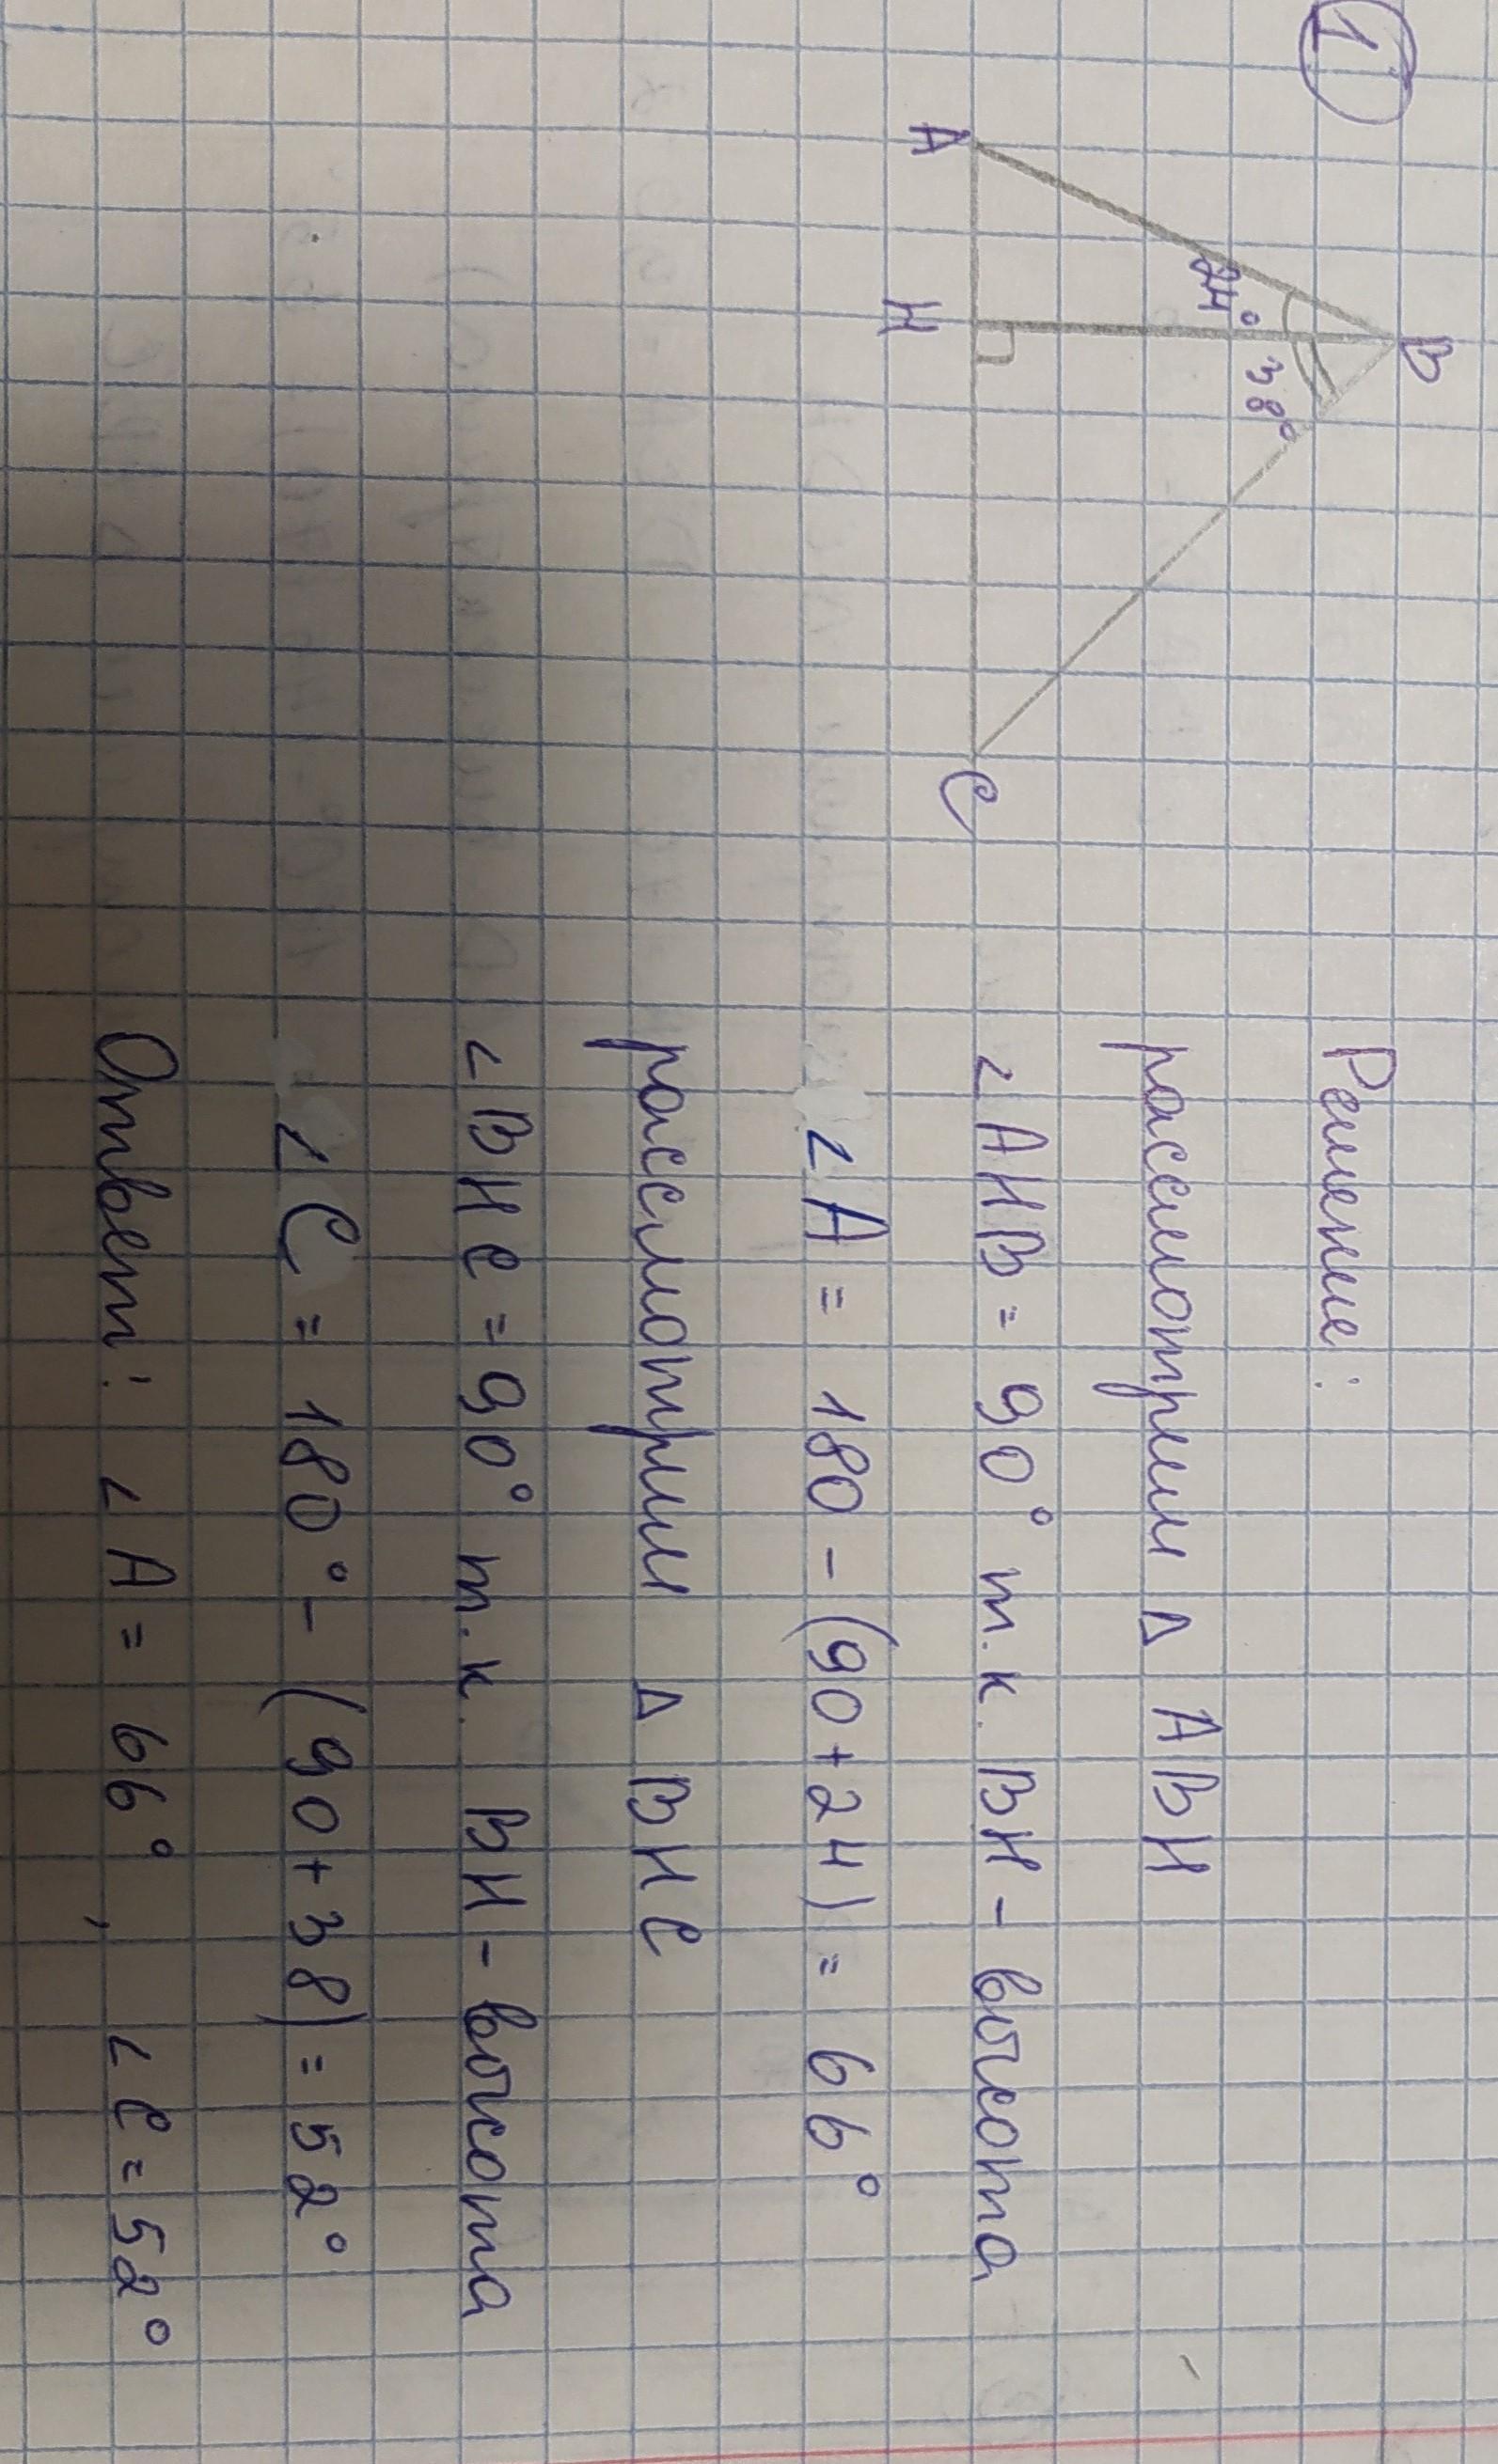 1
B
24°
38°
A
H
C
Решение:
рассмотрим Δ ABH
∠AHB = 90° т.к. BH - высота
∠A = 180 - (90 + 24) = 66°
рассмотрим Δ BHC
∠BHC = 90° т.к. BH - высота
∠C = 180° - (90 + 38) = 52°
Ответ: ∠A = 66°, ∠C = 52°